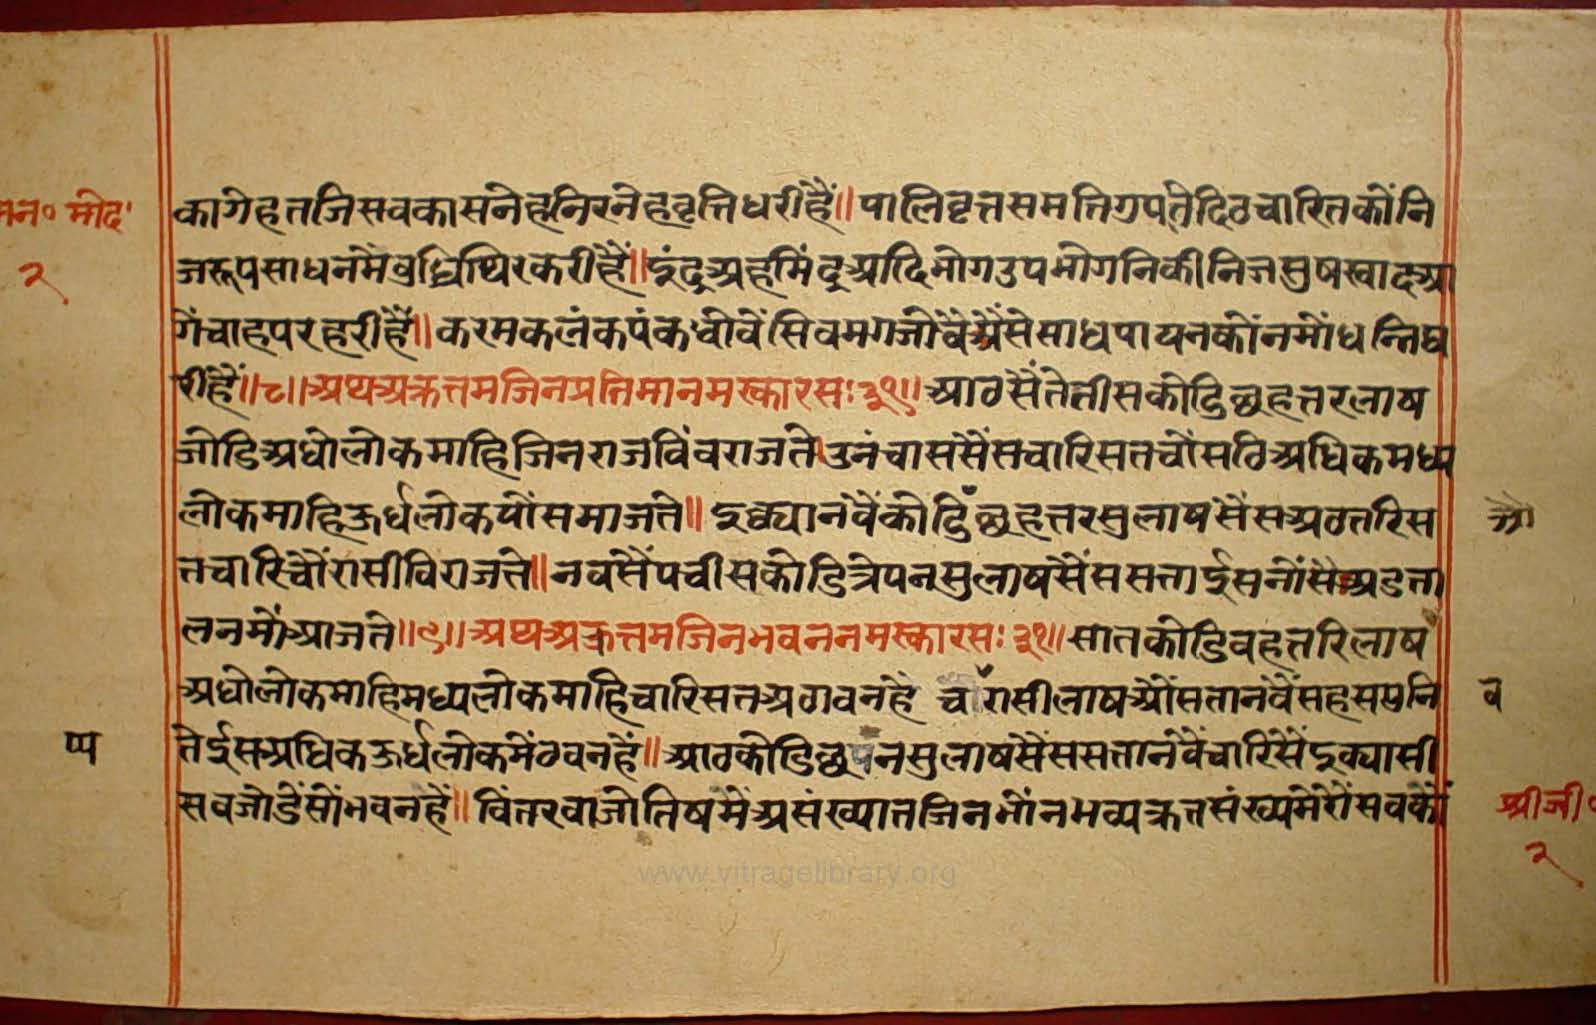 मन॰ मोद॰
२
कागेहतजिसवकासनेहनिरनेहवृत्तिधरीहैं॥पालिवृत्तसमत्तिगुपतेदिठचारितकौंनि
जरूपसाधनमेंवुधिथिरकरीहैं॥इंद्रअहमिंद्रआदिभोगउपभोगनिकीनिजसुषस्वादआ
गेंचाहपरहरीहैं॥करमकलंकपंकधोवेंसिवमगजोवेंअैंसेसाधपायनकौंनमोंधन्तिघ
रीहैं॥८॥अथअक्रत्तमजिनप्रतिमानमस्कारसः३१॥आठसैंतेतीसकोडिछहत्तरलाष
जोडिअधोलोकमाहिजिनराजविंवराजते।उनंचाससैंसचारिसतचौंसठिअधिकमध्य
लोकमाहिऊर्धलोकपौंसमाजते॥इक्यानंवेंकोडिछहत्तरसुलाषसैंसअठतरिस
औ
तचारिचौंरासीविराजते॥नवसैंपचीसकोडित्रेपनसुलाषसैंससत्ताईसनौंसैंअडता
लनमौंआजते॥९॥अथअक्रत्तमजिनभवननमस्कारसः३१॥सातकोडिवहत्तरिलाष
अधोलोकमाहिमध्यलोकमाहिचारिसतअठावनहें चौंरासीलाषऔंसतानंवेंसहसपुनि
व
प्य
तेईसअधिकऊर्धलोकमेंठवनहें॥आठकोडिछपनसुलाषसैंससत्तानंवेंचारिसैंइक्यासी
सवजोडेंसौंभवनहें॥विंतरवाजोतिषमेंअसंख्यातजिनभौंनभव्यक्रतसंख्यमेरौंसवकौं
श्रीजी॰
२
www.vitragelibrary.org